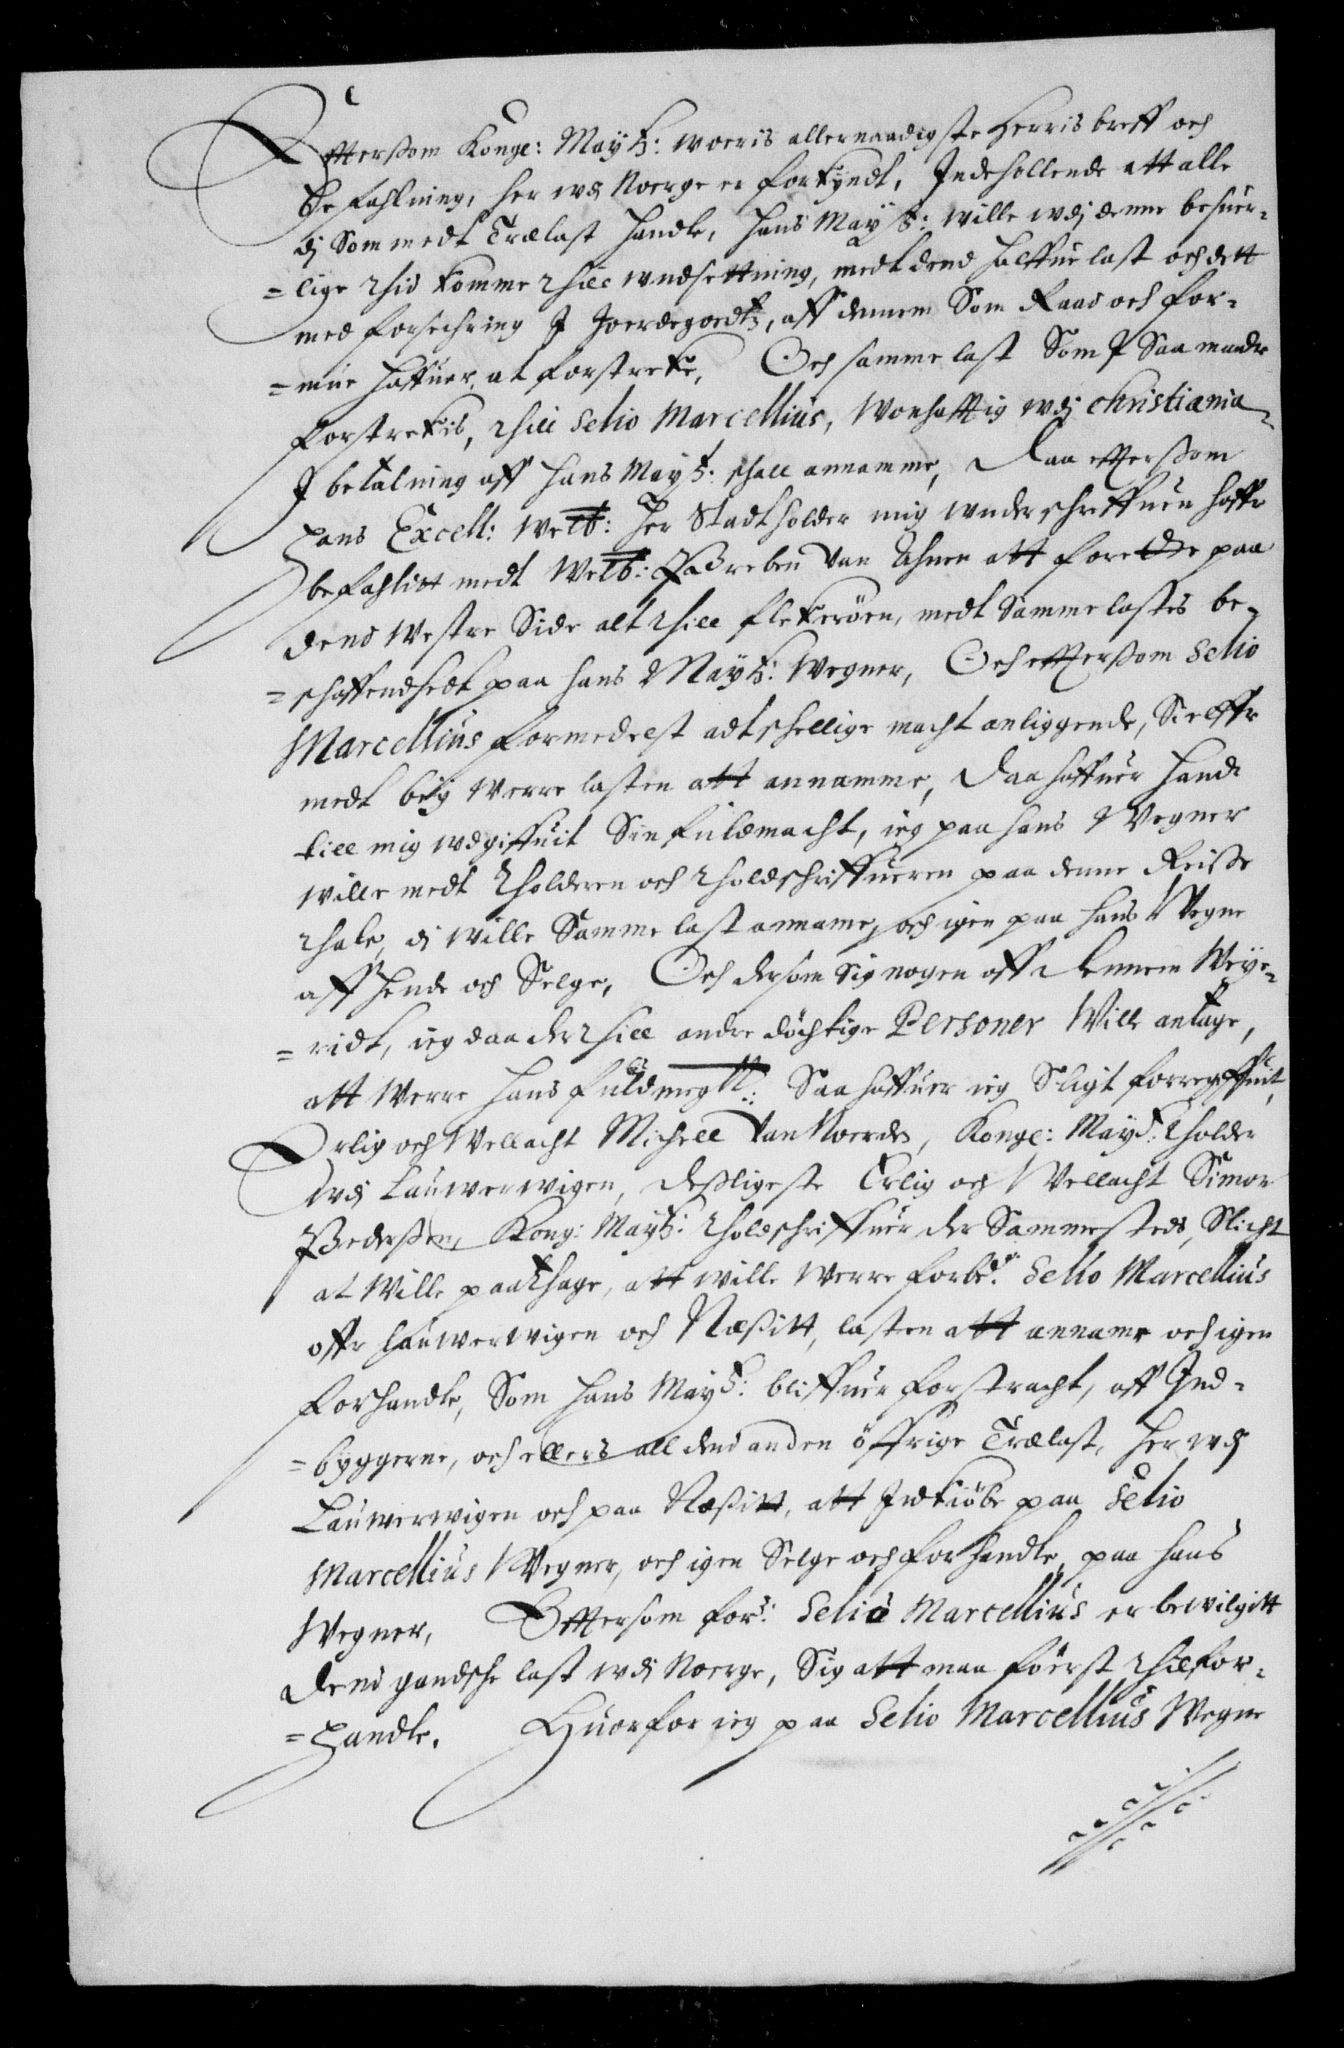 Effterssom Konge: Maytz: woeris allernaadigste Herris breff och
Befahlning, her wdj Norge er forkyndt, Indehollende att alle
dj Som medt Trælast handle, Hans Maytz: wille wdj denne besuer-
=lige thid komme thill wndsettning, medt dend halffue last och dett
med forsechring J Joerdegoedtz, aff dennem Som Raad och for-
=mue haffuer at forstreke, Och samme last Som J Saa maade
forstrekis, thill Selio Marcellius, Wonhafftig wdj Christiania
J betalning aff Hans Maytz: schall annamme, Daa effterssom
Hans Excell: Welb: Her Stadtholder mig wnderschreffuen haffr
befahlitt medt Welb: Preben Van Ahnen att forrette paa
dend Westre Side alt thill flekeröen, medt Samme lastes be-
=schaffendhedt paa Hans Maytz: Wegner, Och effterssom Selio
Marcellius formedelst adtschellige macht anliggende, Sielffr
medt beig werre lasten att annamme, Daa haffuer Hand
till mig wdgiffuit Sin fuldmacht, ieg paa hans Wegner
wille medt tholderen och tholdschriffueren paa denne Reisse
thale, dj wille Samme last anname, och igen paa hans Wegne
aff Hende och Selge, Och dersom Sig nogen aff dennem Weye-
=ridt, ieg daa der thill andre döchtige Personer Wille antage,
att Werre Hans fuldmegtt: Saa haffuer ieg Sligt forregiffuit,
Erlig och Vellacht Michell Van Noerden, Konge: Maytz: tholder
wdj Lauwerwigen, desligeste Erlig och Vellacht Simon
Pederssen, Kong: Maytz: tholdschriffuer der Sammesteds, Slicht
at Wille paa thage, att wille Werre forbe: Selio Marcellius
offr Lauwerwigen och Næsitt, lasten att anname och igen
forhandle, Som Hans Maytz: bliffuer forstracht, aff Ind-
=byggerne, och ellers all dend anden öffrige Trælast, her wdj
Lauwerwigen och paa Næsitt, att Indkiöbe paa Selio
Marcellius Wegner, och igen Selge och forhandle, paa hans
Wegner, Effterssom fors: Selio Marcellius er bewilgitt
dend gandsche last wdj Norge, Sig att maa föerst thilfor-
=handle. Huorfor ieg paa Selio Marcellius Wegne